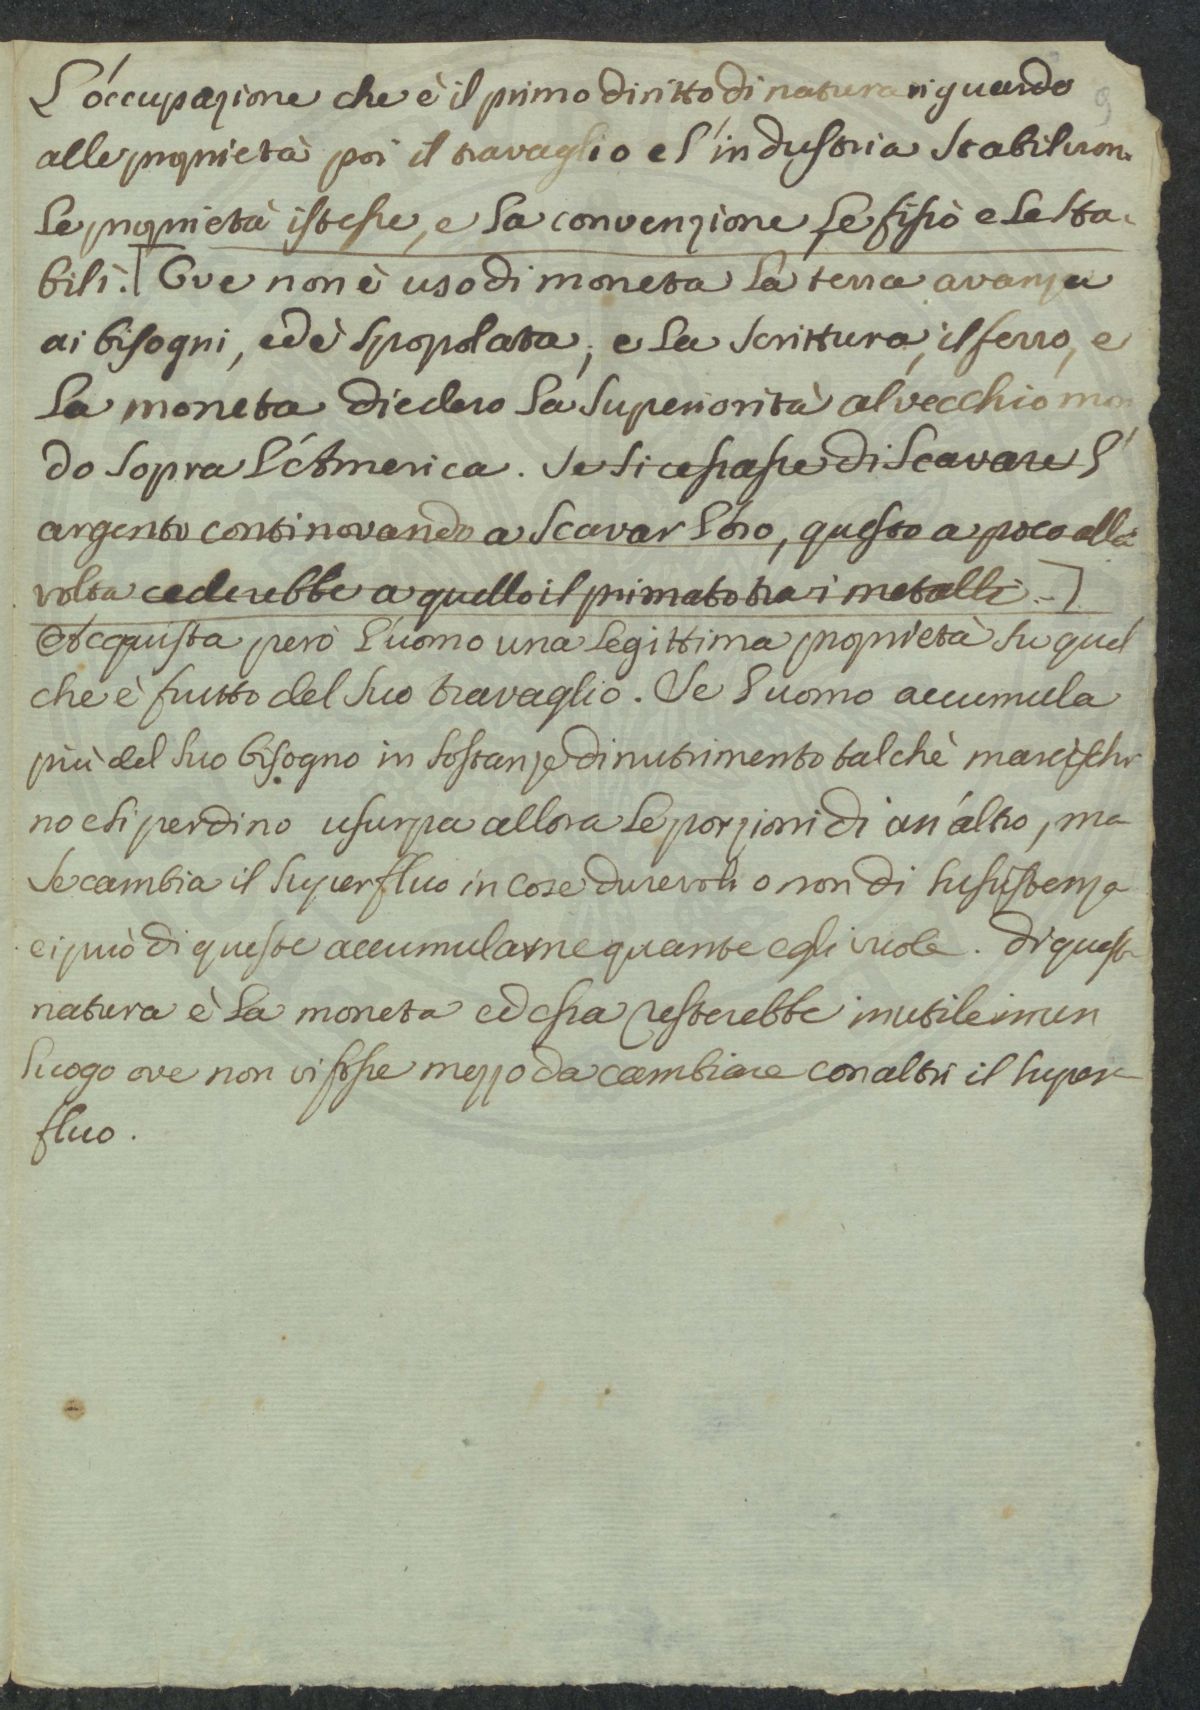 L'occupazione che è il primo diritto di natura riguardo
alle proprietà poi il travaglio e l'industria stabiliron
le proprietà istesse, e la convenzione le fissò e le sta-
bilì. [Ove non è uso di moneta la terra avanza
ai bisogni, ed è spopolata, e la scrittura, il ferro, e
la moneta diedero la superiorità al vecchio mon
do sopra l'America. Se si cessasse di scavare l'
argento continovando a scavar l'oro, questo a poco alla
volta cederebbe a quello il primato tra i metalli.]
Acquista però l'uomo una legittima proprietà su quel
che è frutto del suo travaglio. Se l'uomo accumula
più del suo bisogno in sostanze di nutrimento talchè marcischi
no e si perdino usurpa allora le porzioni di un'altro, ma
se cambia il superfluo in cose durevoli o non di sussistenza
ei può di queste accumularne quante egli vuole. di queste
natura è la moneta ed essa resterebbe inutile in un
luogo ove non vi fosse mezzo da cambiare con altri il super-
fluo.